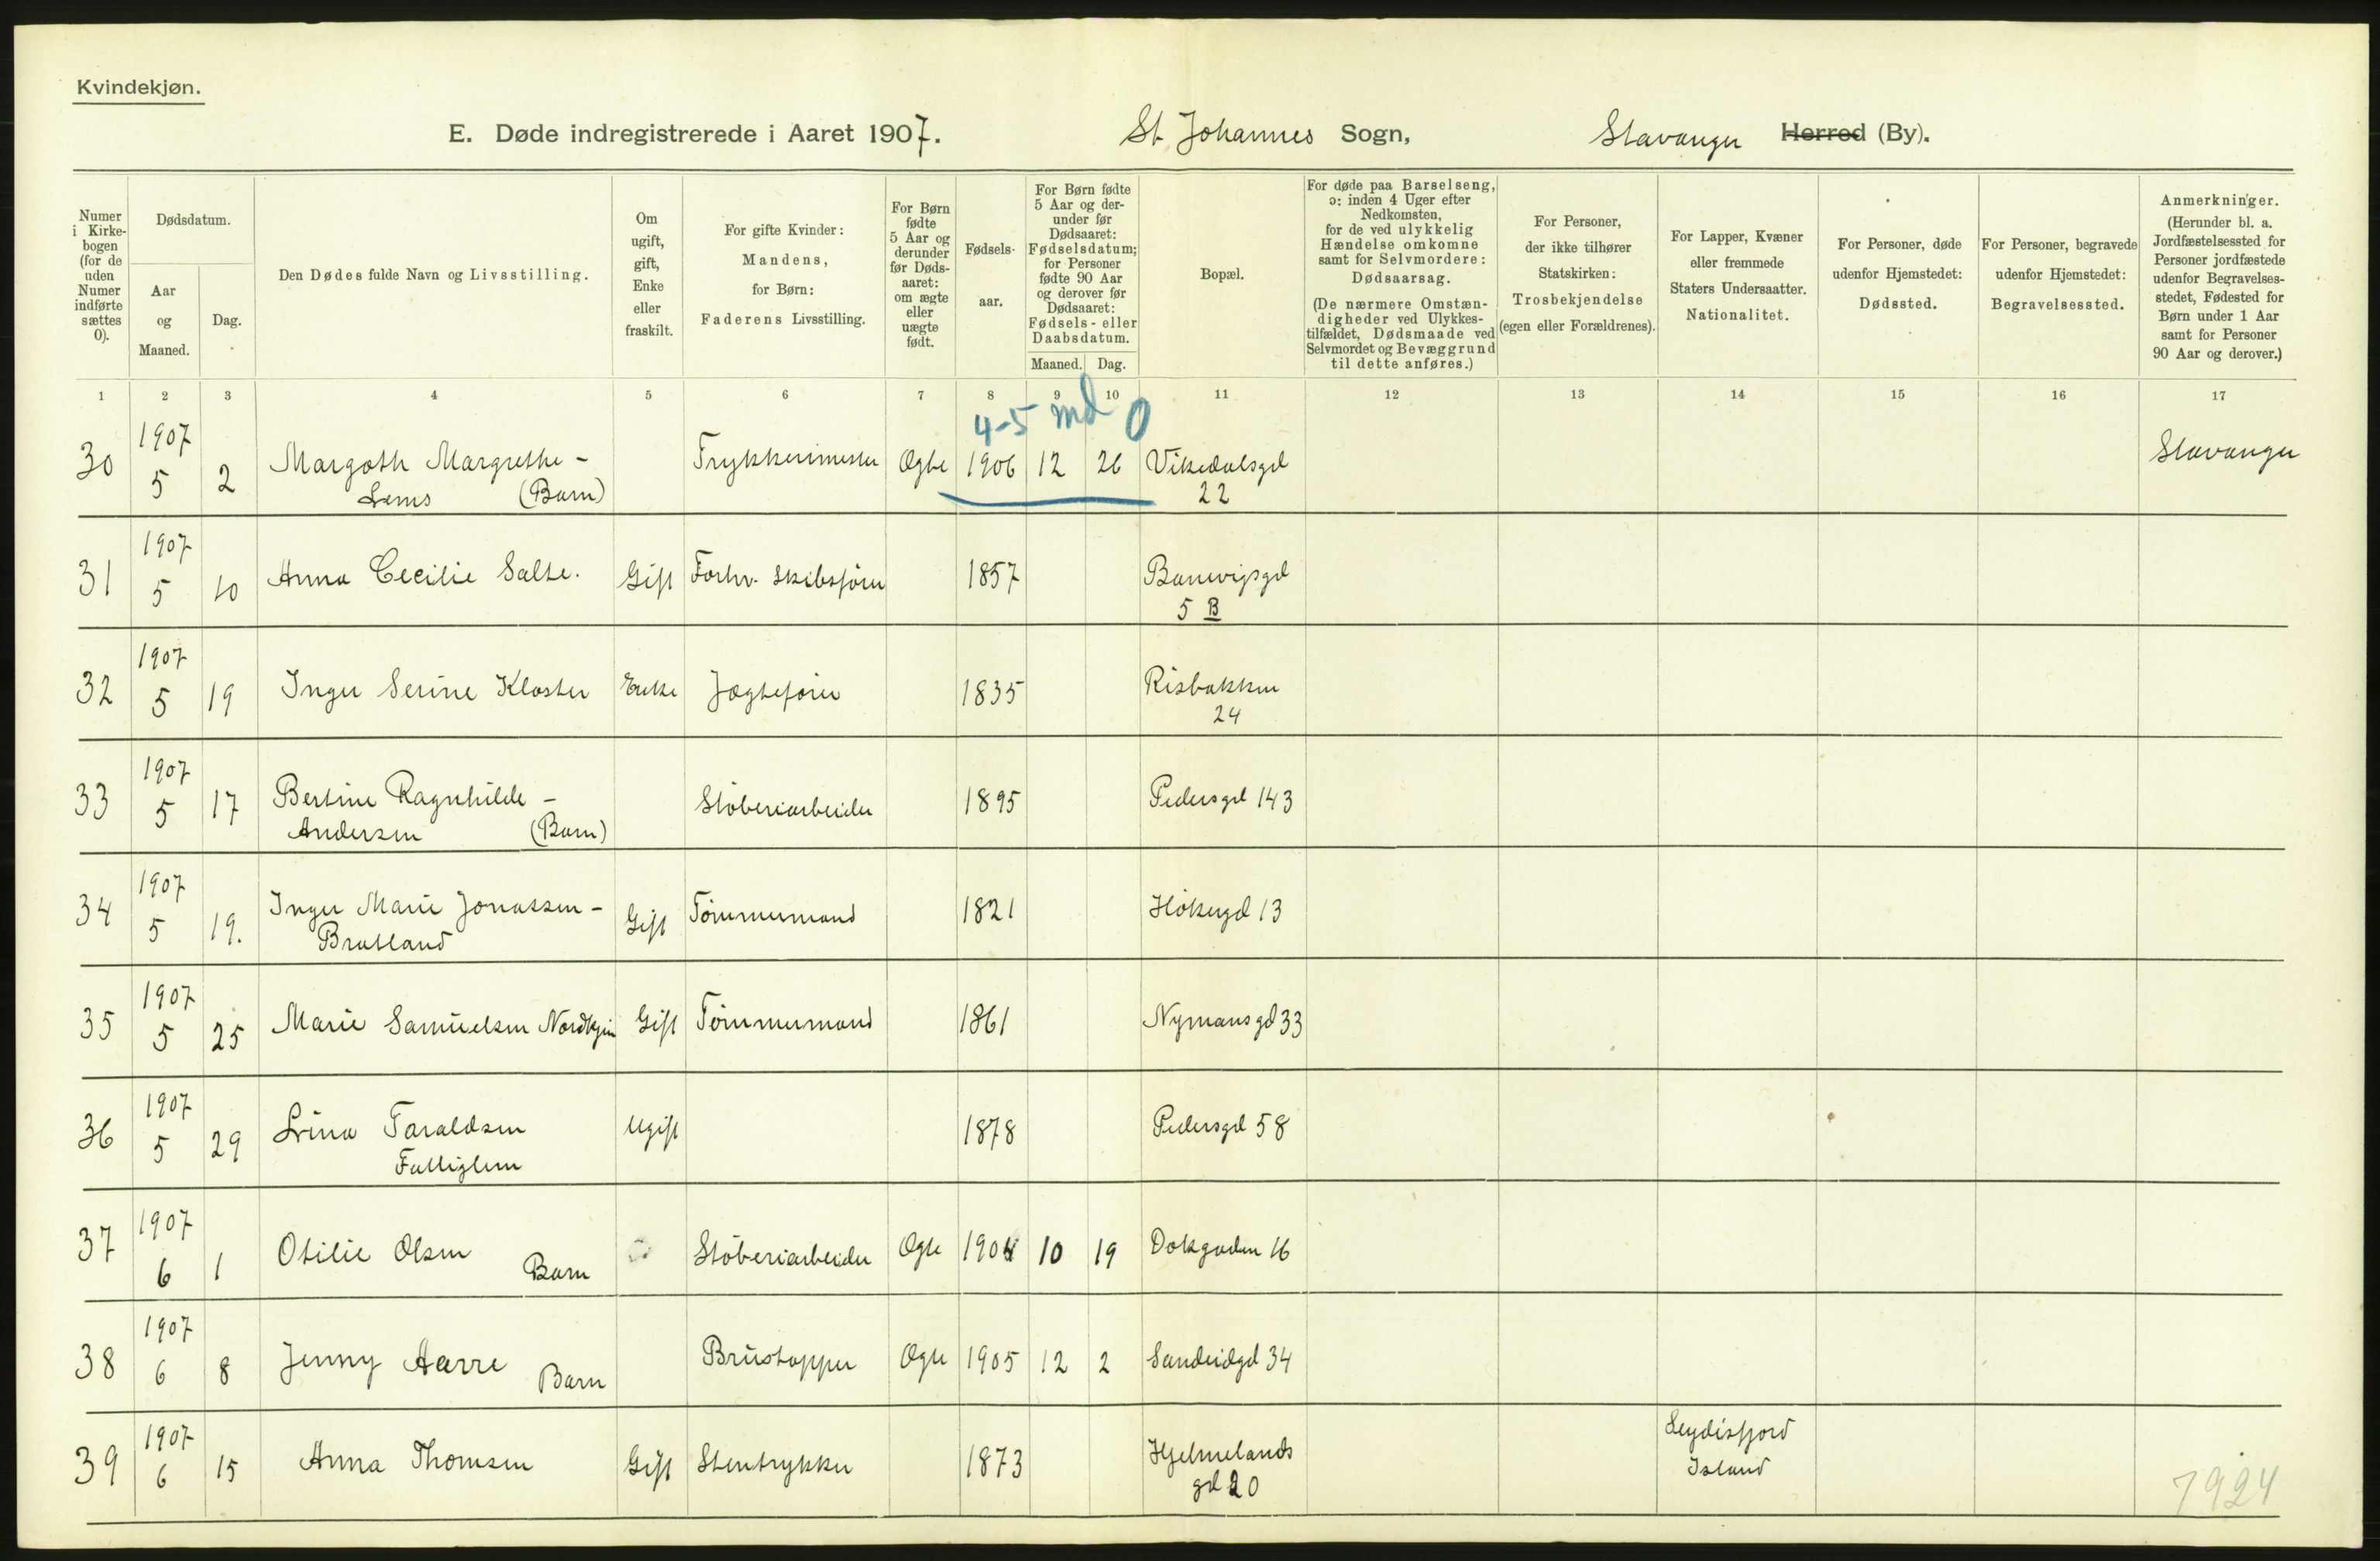 Kvindekjøn.
E. Døde indregistrerede i Aaret 1907. St. Johannes Sogn, Stavanger Herred (By).
Numer i Kirkebogen (for de uden Numer indførte sættes 0).
Dødsdatum.
Aar og Maaned.
Dag.
Den Dødes fulde Navn og Livsstilling.
Om ugift, gift, Enke eller fraskilt.
For gifte Kvinder: Mandens, for Børn: Faderens Livsstilling.
For Børn fødte 5 Aar og derunder før Dødsaaret: om ægte eller uægte født.
Fødselsaar.
For Børn fødte 5 Aar og derunder før Dødsaaret: Fødselsdatum; for Personer fødte 90 Aar og derover før Dødsaaret: Fødsels- eller Daabsdatum.
Maaned. Dag.
Bopæl.
For døde paa Barselseng, ɔ: inden 4 Uger efter Nedkomsten, for de ved ulykkelig Hændelse omkomne samt for Selvmordere: Dødsaarsag.
(De nærmere Omstændigheder ved Ulykkestilfældet, Dødsmaade ved Selvmordet og Bevæggrund til dette anføres.)
For Personer, der ikke tilhører Statskirken: Trosbekjendelse (egen eller Forældrenes).
For Lapper, Kvæner eller fremmede Staters Undersaatter. Nationalitet.
For Personer, døde udenfor Hjemstedet: Dødssted.
For Personer, begravede udenfor Hjemstedet: Begravelsessted.
Anmerkninger.
(Herunder bl. a. Jordfæstelsessted for Personer jordfæstede udenfor Begravelsesstedet, Fødested for Børn under 1 Aar samt for Personer 90 Aar og derover.)
1 2 3 4 5 6 7 8 9 10 11 12 13 14 15 16 17
4-5 md 0
30 1907 5 2 Margoth Margrethe - Lems (Barn) Trykkerimester Ægte 1906 12 26 Vikedalsgd 22 Stavanger
31 1907 5 10 Anna Cecilie Salte. Gift Forhv. Skibsfører 1857 Banevigsgd 5 B
32 1907 5 19 Inger Serine Kloster Enke Jægtefører 1835 Risbakken 24
33 1907 5 17 Bertine Ragnhilde - Andersen (Barn) Støberiarbeider 1895 Pedersgd 143
34 1907 5 19. Inger Marie Jonassen - Bratland Gift Tømmermand 1821 Høkergd 13
35 1907 5 25 Marie Samuelsen Gift Tømmermand 1861 Nymansgd 33
36 1907 5 29 Lina Taraldsen Fattiglem Ugift 1878 Pedersgd 58
37 1907 6 1 Otilie Olsen Barn Støberiarbeider Ægte 1904 10 19 Dokgaden 16
38 1907 6 8 Jenny Aarre Barn Brustapper Ægte 1905 12 2 Sandeidgd 34
39 1907 6 15 Anna Thomsen Gift Stentrykker 1873 Hjelmelandsgd 20 Seydisfjord Island
7924